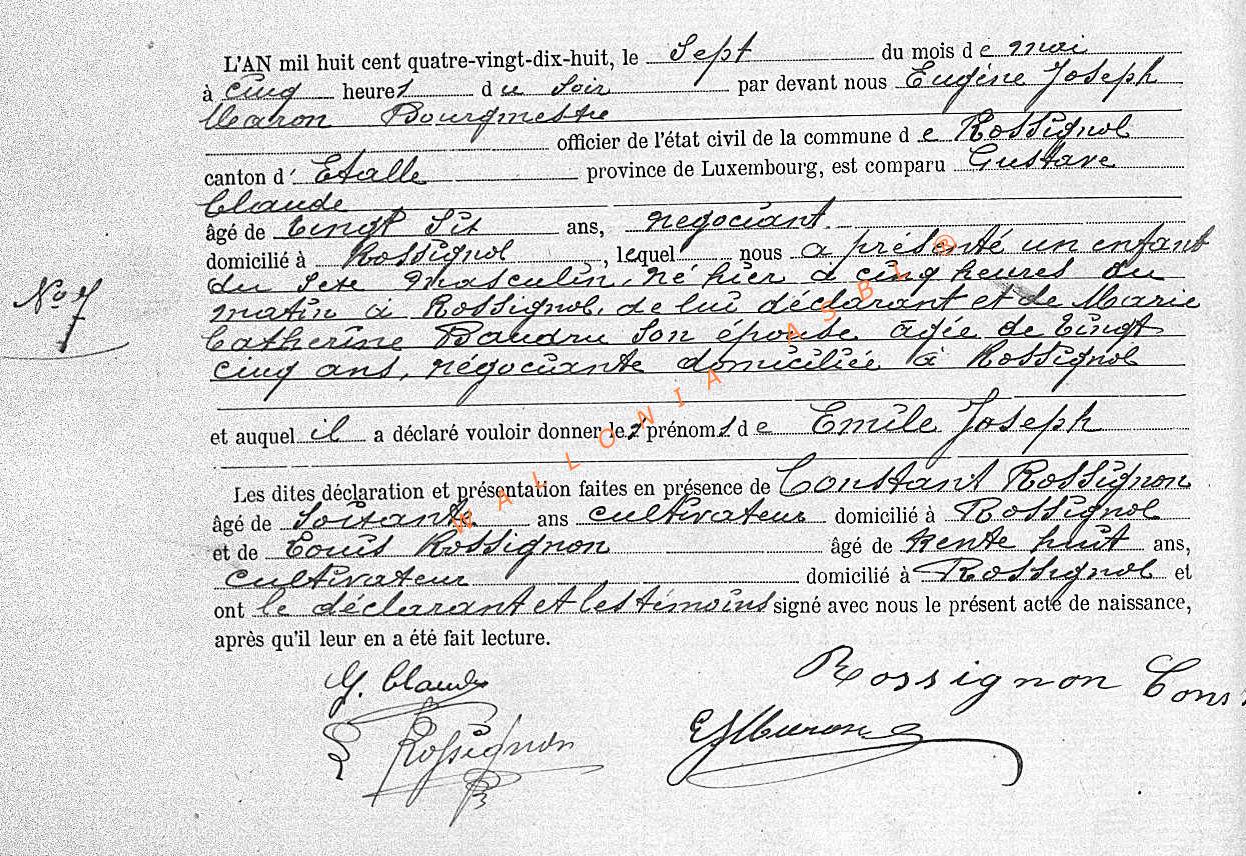 L'AN mil huit cent quatre-vingt-dix-huit, le Sept du mois de mai
à cinq heures du soir par devant nous Eugène Joseph
Maron Bourgmestre
officier de l'état civil de la commune de Rossignol
canton d'Etalle province de Luxembourg, est comparu Gustave
Claude
âgé de vingt six ans, négociant
domicilié à Rossignol, lequel nous a présenté un enfant
du sexe masculin, né hier à cinq heures du
matin à Rossignol, de lui déclarant et de Marie
Catherine Baudru son épouse âgée de vingt
cinq ans, négociante domiciliée à Rossignol
No 7
et auquel il a déclaré vouloir donner les prénoms de Emile Joseph
Les dites déclaration et présentation faites en présence de Constant Rossignon
âgé de soixante ans cultivateur domicilié à Rossignol
et de Louis Rossignon âgé de trente huit ans,
cultivateur domicilié à Rossignol et
ont le déclarant et les témoins signé avec nous le présent acte de naissance,
après qu'il leur en a été fait lecture.
G. Claude Rossignon Cons
L Rossignon EJMaron
WALLONIA ASBL ®